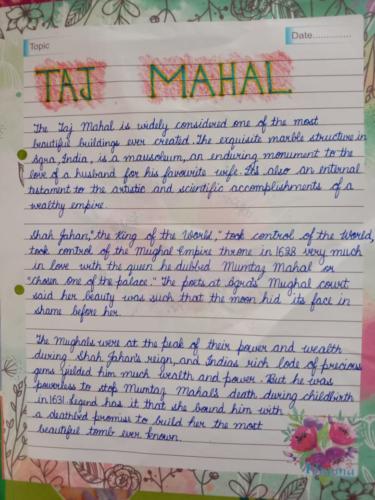 Topic
Date..............
TAJ MAHAL
The Taj Mahal is widely considered one of the most
beautiful buildings ever created. The exquisite marble structure in
Agra, India, is a mausoleum, an enduring monument to the
love of a husband for his favourite wife. Its also an enternal
testament to the artistic and scientific accomplishments of a
wealthy empire.
Shah Jahan, "the King of the World," took control of the World,
took control of the Mughal Empire throne in 1628 very much
in love with the queen he dubbed Mumtaz Mahal or
"Chosen one of the palace." The poets at Agra's Mughal court
said her beauty was such that the moon hid its face in
shame before her.
The Mughals were at the peak of their power and wealth
during Shah Jahan's reign, and India's rich lode of precious
gems yielded him much wealth and power. But he was
powerless to stop Mumtaz Mahal's death during childbirth
in 1631. Legend has it that she bound him with
a deathbed promise to build her the most
beautiful tomb ever known.